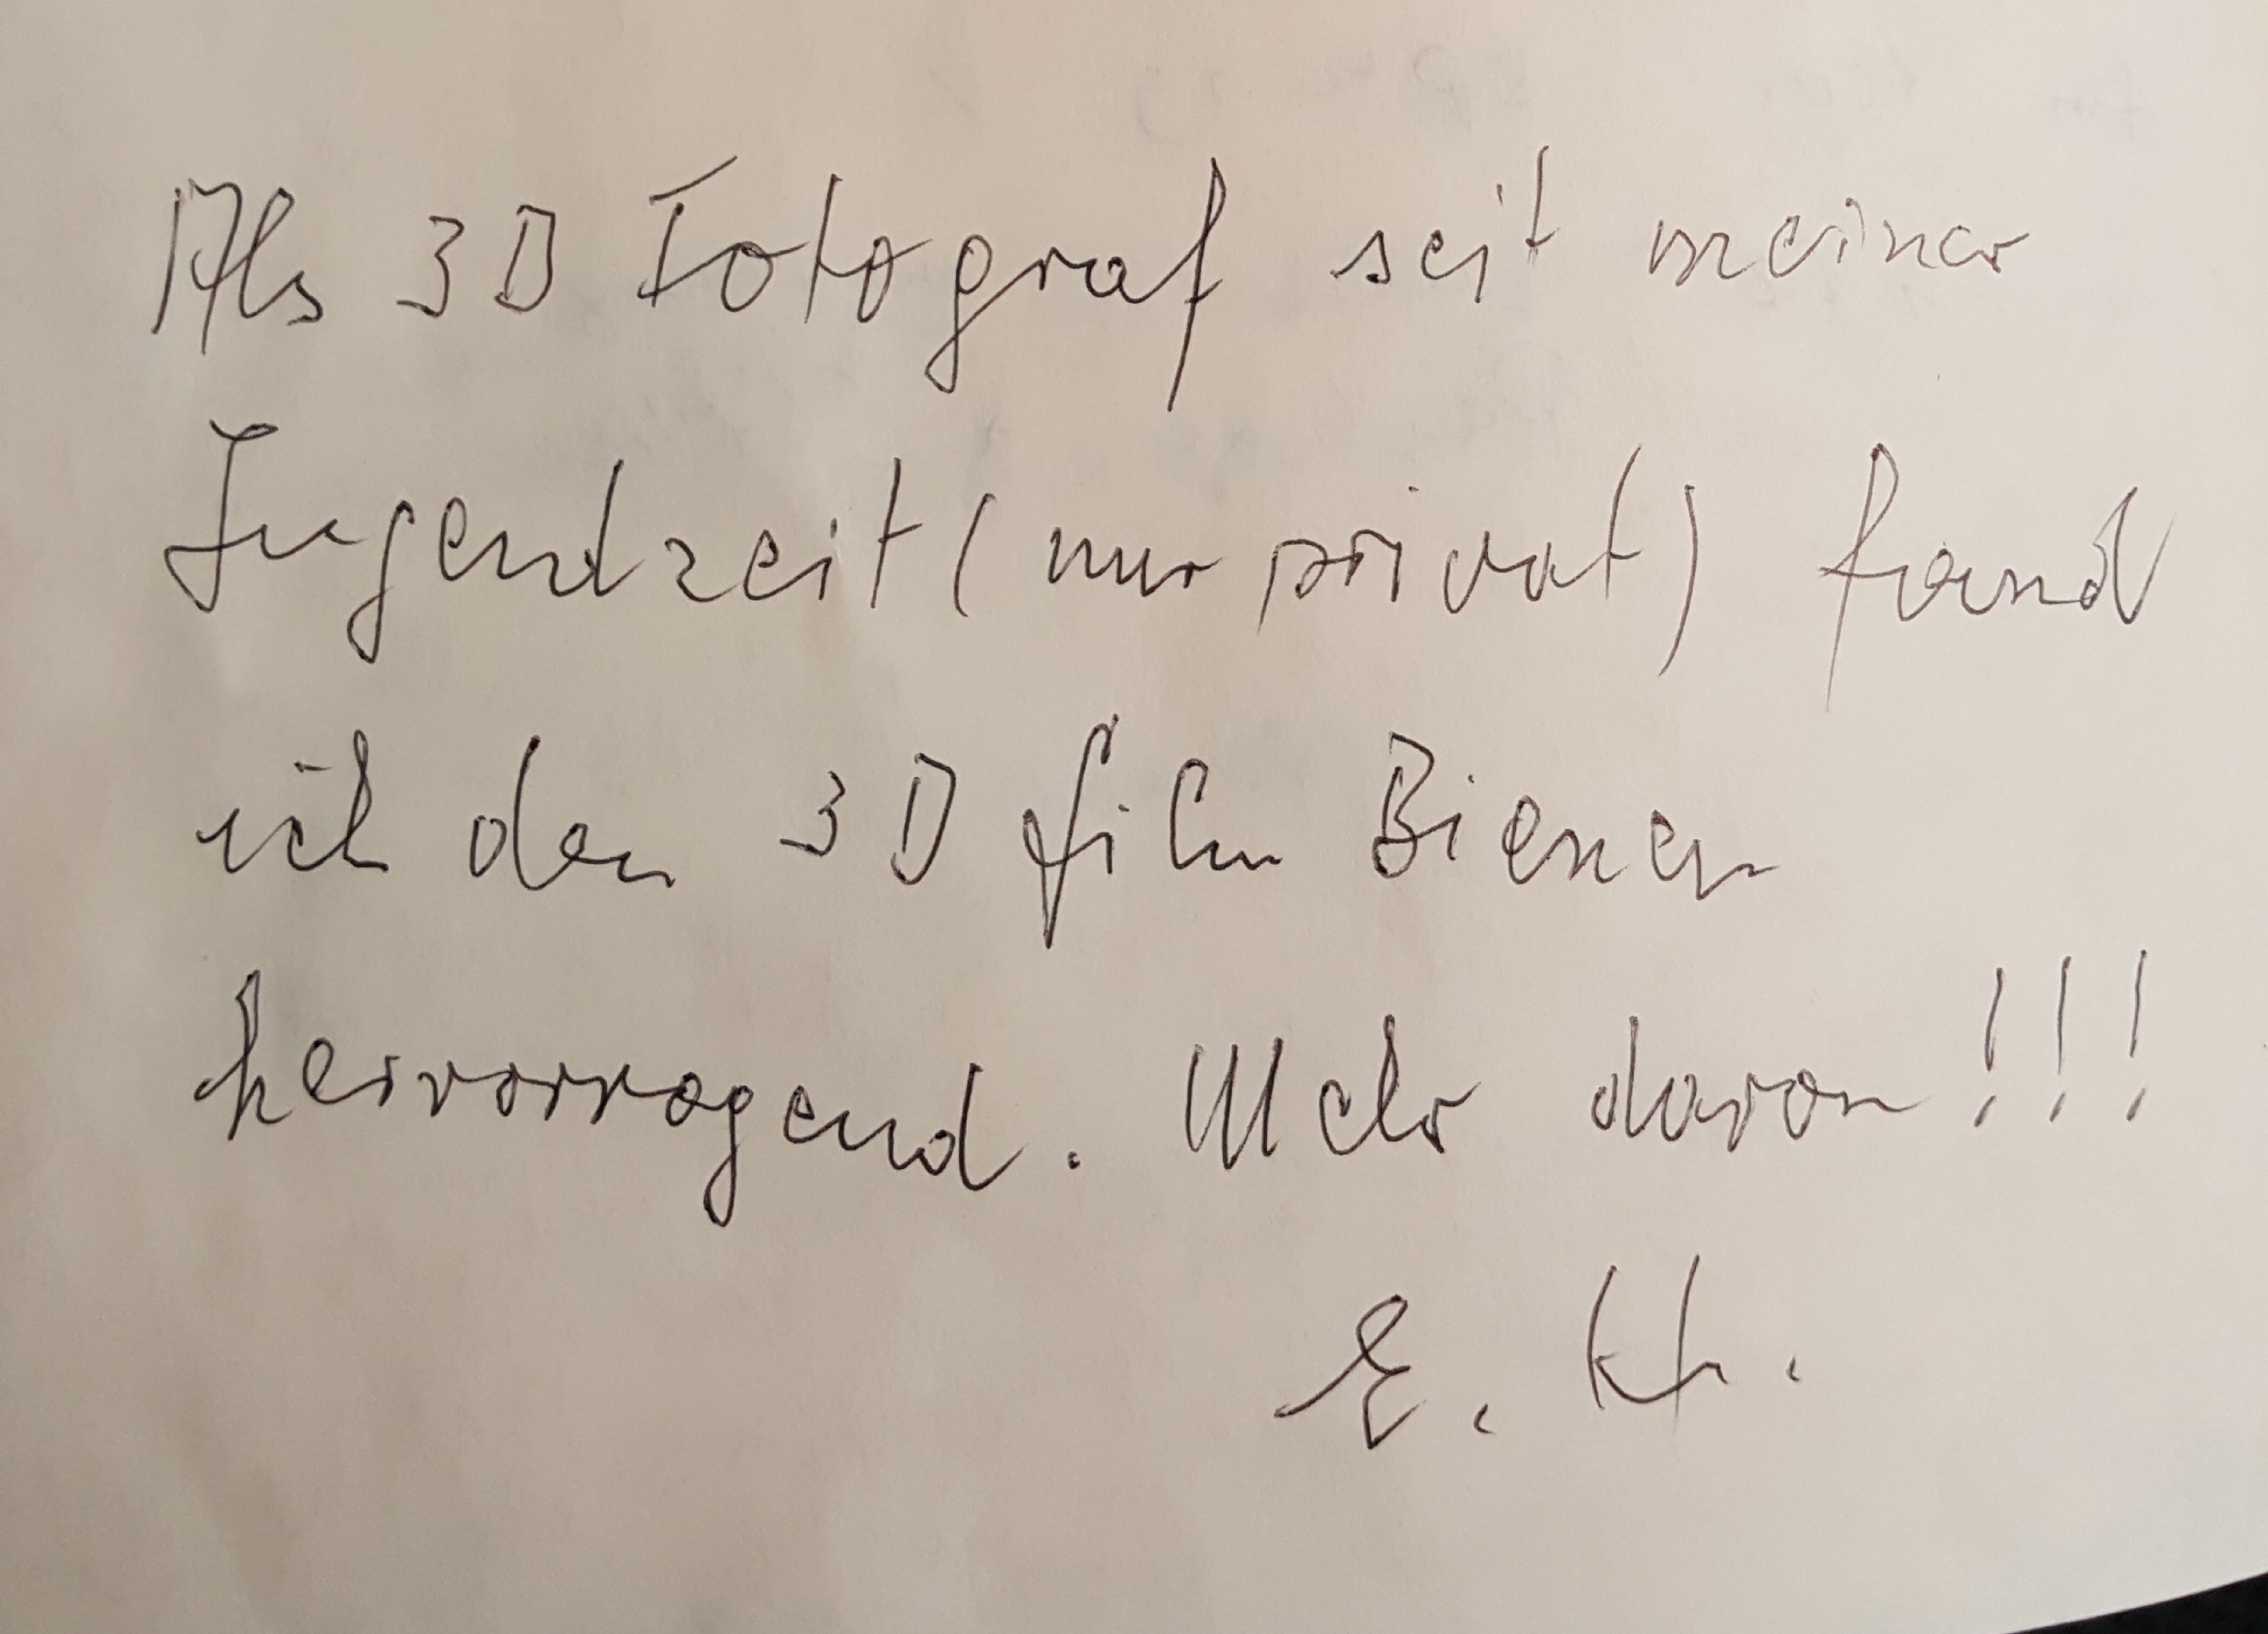 Als 3D Fotograf seit meiner
Jugendzeit (nur privat) fand
ich den 3D film Bienen
hervorragend. Mehr davon!!!
E. Kh.